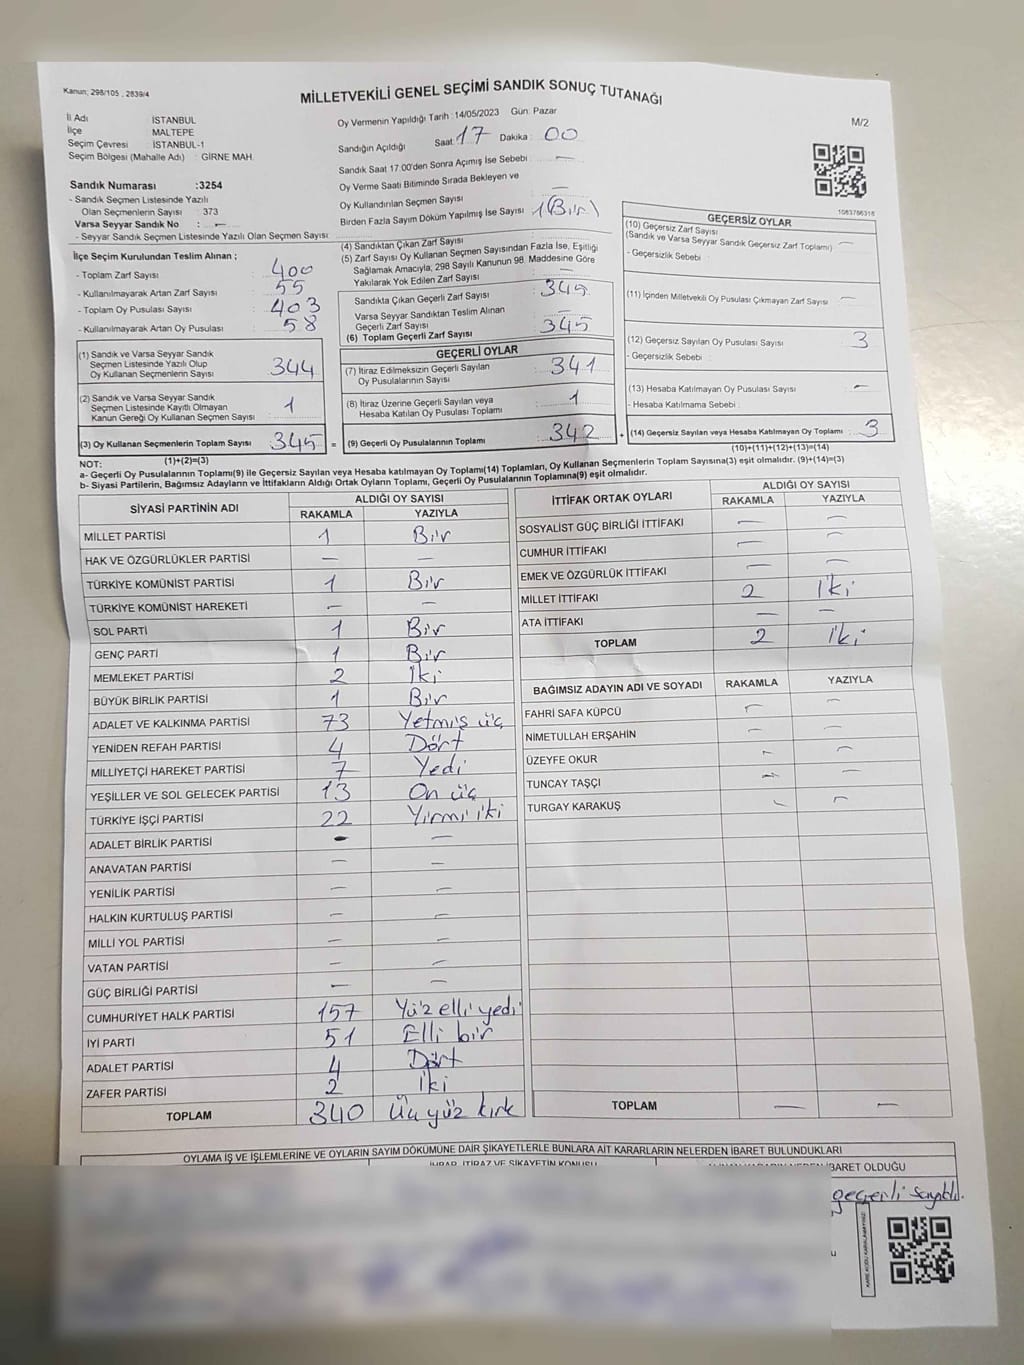 Kanun; 298/105 , 2839/4
MİLLETVEKİLİ GENEL SEÇİMİ SANDIK SONUÇ TUTANAĞI
M/2
İl Adı : İSTANBUL
İlçe : MALTEPE
Seçim Çevresi : İSTANBUL-1
Seçim Bölgesi (Mahalle Adı) : GİRNE MAH.
Sandık Numarası :3254
- Sandık Seçmen Listesinde Yazılı
Olan Seçmenlerin Sayısı : 373
Varsa Seyyar Sandık No : —
- Seyyar Sandık Seçmen Listesinde Yazılı Olan Seçmen Sayısı:
İlçe Seçim Kurulundan Teslim Alınan ;
- Toplam Zarf Sayısı : 400
- Kullanılmayarak Artan Zarf Sayısı : 55
- Toplam Oy Pusulası Sayısı : 403
- Kullanılmayarak Artan Oy Pusulası : 58
(1) Sandık ve Varsa Seyyar Sandık
Seçmen Listesinde Yazılı Olup
Oy Kullanan Seçmenlerin Sayısı : 344
(2) Sandık ve Varsa Seyyar Sandık
Seçmen Listesinde Kayıtlı Olmayan
Kanun Gereği Oy Kullanan Seçmen Sayısı : 1
(3) Oy Kullanan Seçmenlerin Toplam Sayısı : 345
(1)+(2)=(3)
Oy Vermenin Yapıldığı Tarih : 14/05/2023 Gün: Pazar
Sandığın Açıldığı Saat: 17 Dakika : 00
Sandık Saat 17:00'den Sonra Açımış İse Sebebi : —
Oy Verme Saati Bitiminde Sırada Bekleyen ve
Oy Kullandırılan Seçmen Sayısı : —
Birden Fazla Sayım Döküm Yapılmış İse Sayısı : 1 (Bir)
(4) Sandıktan Çıkan Zarf Sayısı
(5) Zarf Sayısı Oy Kullanan Seçmen Sayısından Fazla İse, Eşitliği
Sağlamak Amacıyla, 298 Sayılı Kanunun 98. Maddesine Göre
Yakılarak Yok Edilen Zarf Sayısı : —
Sandıkta Çıkan Geçerli Zarf Sayısı : 345
Varsa Seyyar Sandıktan Teslim Alınan
Geçerli Zarf Sayısı : —
(6) Toplam Geçerli Zarf Sayısı : 345
GEÇERLİ OYLAR
(7) İtiraz Edilmeksizin Geçerli Sayılan
Oy Pusulalarının Sayısı : 341
(8) İtiraz Üzerine Geçerli Sayılan veya
Hesaba Katılan Oy Pusulası Toplamı : 1
= (9) Geçerli Oy Pusulalarının Toplamı : 342
1083786318
GEÇERSİZ OYLAR
(10) Geçersiz Zarf Sayısı
(Sandık ve Varsa Seyyar Sandık Geçersiz Zarf Toplamı) : —
- Geçersizlik Sebebi :
(11) İçinden Milletvekili Oy Pusulası Çıkmayan Zarf Sayısı : —
(12) Geçersiz Sayılan Oy Pusulası Sayısı : 3
- Geçersizlik Sebebi :
(13) Hesaba Katılmayan Oy Pusulası Sayısı : —
- Hesaba Katılmama Sebebi :
+ (14) Geçersiz Sayılan veya Hesaba Katılmayan Oy Toplamı : 3
(10)+(11)+(12)+(13)=(14)
NOT:
a- Geçerli Oy Pusulalarının Toplamı(9) ile Geçersiz Sayılan veya Hesaba katılmayan Oy Toplamı(14) Toplamları, Oy Kullanan Seçmenlerin Toplam Sayısına(3) eşit olmalıdır. (9)+(14)=(3)
b- Siyasi Partilerin, Bağımsız Adayların ve İttifakların Aldığı Ortak Oyların Toplamı, Geçerli Oy Pusulalarının Toplamına(9) eşit olmalıdır.
SİYASİ PARTİNİN ADI ALDIĞI OY SAYISI
RAKAMLA YAZIYLA
MİLLET PARTİSİ 1 Bir
HAK VE ÖZGÜRLÜKLER PARTİSİ — —
TÜRKİYE KOMÜNİST PARTİSİ 1 Bir
TÜRKİYE KOMÜNİST HAREKETİ — —
SOL PARTİ 1 Bir
GENÇ PARTİ 1 Bir
MEMLEKET PARTİSİ 2 İki
BÜYÜK BİRLİK PARTİSİ 1 Bir
ADALET VE KALKINMA PARTİSİ 73 Yetmiş üç
YENİDEN REFAH PARTİSİ 4 Dört
MİLLİYETÇİ HAREKET PARTİSİ 7 Yedi
YEŞİLLER VE SOL GELECEK PARTİSİ 13 On üç
TÜRKİYE İŞÇİ PARTİSİ 22 Yirmi iki
ADALET BİRLİK PARTİSİ — —
ANAVATAN PARTİSİ — —
YENİLİK PARTİSİ — —
HALKIN KURTULUŞ PARTİSİ — —
MİLLİ YOL PARTİSİ — —
VATAN PARTİSİ — —
GÜÇ BİRLİĞİ PARTİSİ — —
CUMHURİYET HALK PARTİSİ 157 Yüz elli yedi
İYİ PARTİ 51 Elli bir
ADALET PARTİSİ 4 Dört
ZAFER PARTİSİ 2 İki
TOPLAM 340 Üç yüz kırk
İTTİFAK ORTAK OYLARI ALDIĞI OY SAYISI
RAKAMLA YAZIYLA
SOSYALİST GÜÇ BİRLİĞİ İTTİFAKI — —
CUMHUR İTTİFAKI — —
EMEK VE ÖZGÜRLÜK İTTİFAKI — —
MİLLET İTTİFAKI 2 İki
ATA İTTİFAKI — —
TOPLAM 2 İki
BAĞIMSIZ ADAYIN ADI VE SOYADI RAKAMLA YAZIYLA
FAHRİ SAFA KÜPCÜ — —
NİMETULLAH ERŞAHİN — —
ÜZEYFE OKUR — —
TUNCAY TAŞÇI — —
TURGAY KARAKUŞ — —
TOPLAM — —
OYLAMA İŞ VE İŞLEMLERİNE VE OYLARIN SAYIM DÖKÜMÜNE DAİR ŞİKAYETLERLE BUNLARA AİT KARARLARIN NELERDEN İBARET BULUNDUKLARI
İHBAR, İTİRAZ VE ŞİKAYETİN KONUSU
İBARET OLDUĞU
geçerli sayıldı.
KARE KODU KARALAMAYINIZ